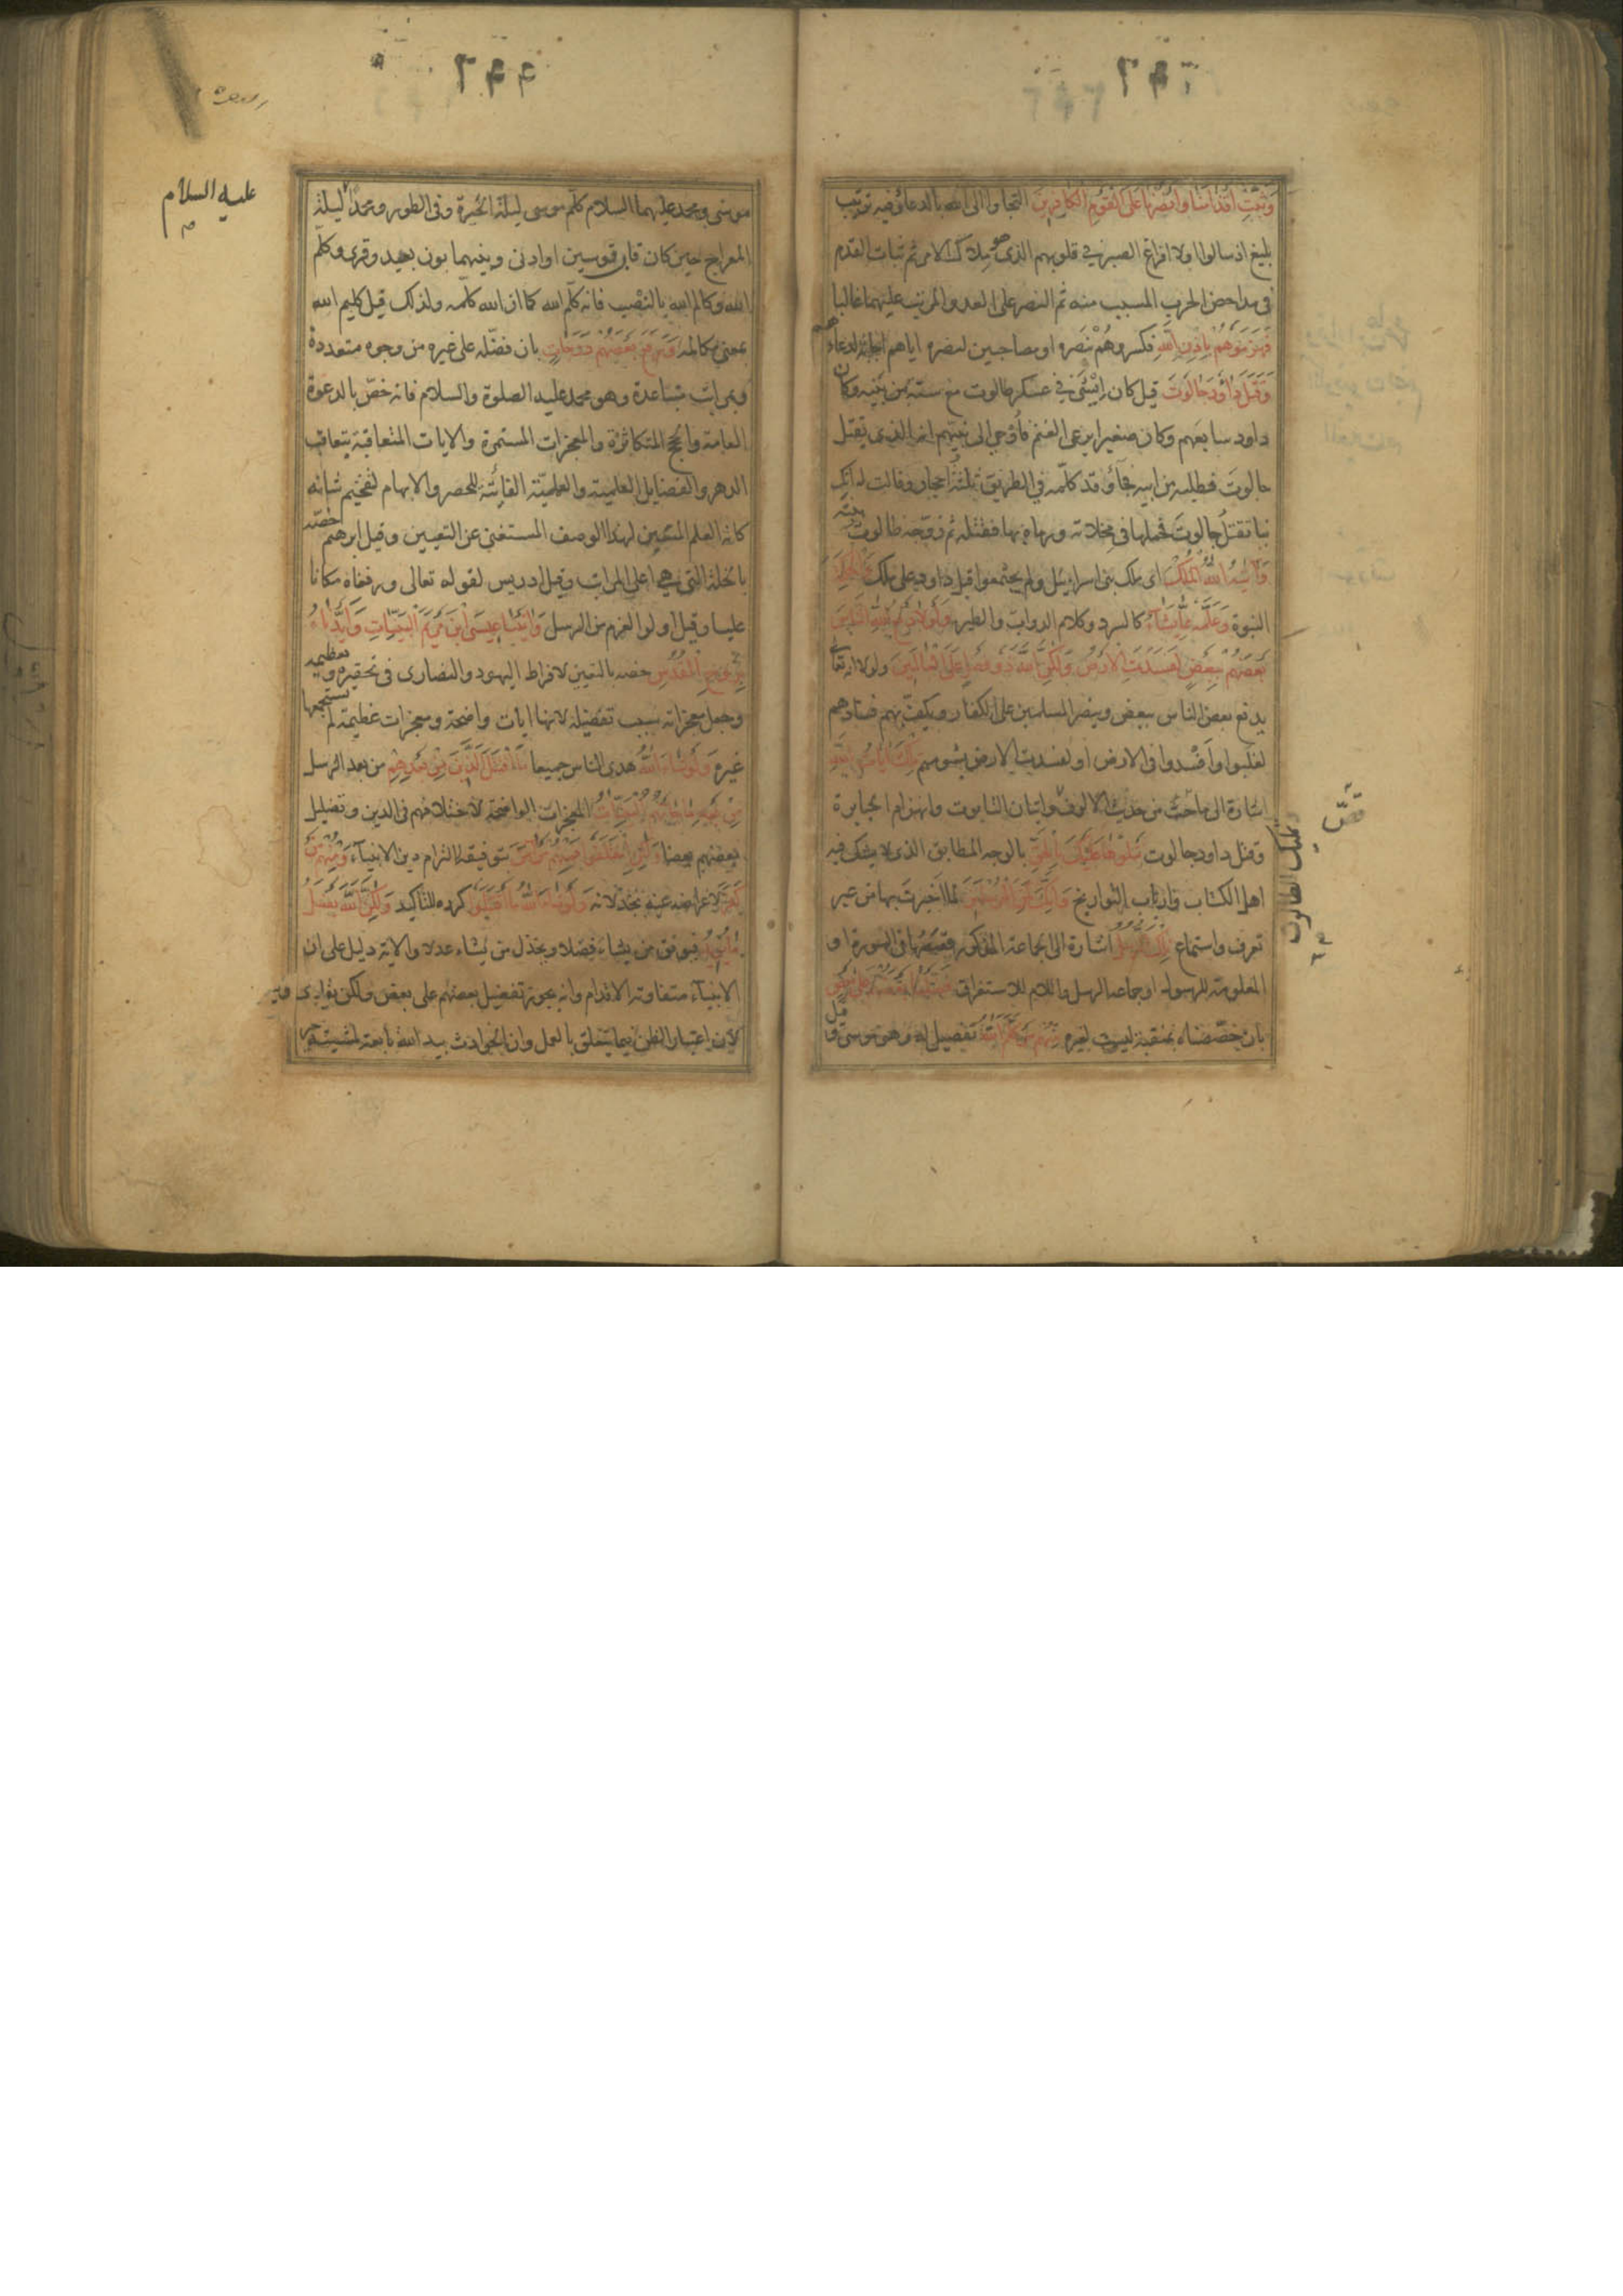 وَثَبِّتْ اَقْدَامَنَا وَانْصُرْنَا عَلَى الْقَوْمِ الْكَافِرِينَ التجاوا الى الله بالدعاء وفيه ترتيب
بليغ اذ سالوا اولا افراغ الصبر في قلوبهم الذى هو ملاك الامر ثم ثبات القدم
فى مداحض الحرب المسبب منه ثم النصر على العدو المرتب عليهما غالبا
فَهَزَمُوهُمْ بِاِذْنِ اللّٰهِ فكسروهم بنصره او مصاحبين لنصره اياهم اجابة لدعائهم
وَقَتَلَ دَاوُدُ جَالُوتَ قيل كان ايشى في عسكر طالوت مع ستة من بنيه وكان
داود سابعهم وكان صغيرا يرعى الغنم فأوحي الى نبيهم انه الذى يقتل
جالوت فطلبه من ابيه فجاء وقد كلمه فى الطريق ثلثة احجار وقالت له انك
بنا تقتل جالوت فحملها فى مخلاته ورماه بها فقتله ثم زوجه طالوت بنته
وَاٰتٰيهُ اللّٰهُ الْمُلْكَ اى ملك بنى اسرائيل ولم يجتمعوا قبل داود على ملك وَالْحِكْمَةَ
النبوة وَعَلَّمَهُ مِمَّا يَشَاءُ كالسرد وكلام الدواب والطير وَلَوْلَا دَفْعُ اللّٰهِ النَّاسَ
بَعْضَهُمْ بِبَعْضٍ لَفَسَدَتِ الْاَرْضُ وَلٰكِنَّ اللّٰهَ ذُو فَضْلٍ عَلَى الْعَالَمِينَ ولولا انه تعالى
يدفع بعض الناس ببعض وينصر المسلمين على الكفار ويكف بهم فسادهم
لغلبوا وافسدوا فى الارض او لفسدت الارض بشومهم تِلْكَ اٰيَاتُ اللّٰهِ
اشارة الى ما حدث من حديث الالوف واتيان التابوت وانهزام الجبابرة
وقتل داود جالوت نَتْلُوهَا عَلَيْكَ بِالْحَقِّ بالوجه المطابق الذى لا يشك فيه
اهل الكتاب وارباب التواريخ وَاِنَّكَ لَمِنَ الْمُرْسَلِينَ لما اخبرت بها من غير
تعرف واستماع تِلْكَ الرُّسُلُ اشارة الى الجماعة المذكور قصصها فى السورة او
المعلومة للرسول او جماعة الرسل واللام للاستغراق فَضَّلْنَا بَعْضَهُمْ عَلٰى بَعْضٍ
بان خصصناه بمنقبة ليست لغيره مِنْهُمْ مَنْ كَلَّمَ اللّٰهُ تفصيل له وهو موسى وقيل
وتمليك الطالوت
موسى ومحمد عليهما السلام كلم موسى ليلة الحيرة وفى الطور ومحمدا ليلة
المعراج حين كان قاب قوسين او ادنى وبينهما بون بعيد وقرئ وكلم
الله وكالم الله بالنصب فانه كلم الله كما ان الله كلمه ولذلك قيل كليم الله
بمعنى مكالمه وَرَفَعَ بَعْضَهُمْ دَرَجَاتٍ بان فضله على غيره من وجوه متعددة
وبمراتب متباعدة وهو محمد عليه الصلوة والسلام فانه خص بالدعوة
العامة والحجج المتكاثرة والمعجزات المستمرة والايات المتعاقبة بتعاقب
الدهر والفضايل العلمية والعملية الفائتة للحصر والابهام لتفخيم شانه
كانه العلم المتعين لهذا الوصف المستغنى عن التعيين وقيل ابرهيم خصه
بالخلة التى هي اعلى المراتب وقيل ادريس لقوله تعالى ورفعناه مكانا
عليا وقيل اولوا العزم من الرسل وَاٰتَيْنَا عِيسَى ابْنَ مَرْيَمَ الْبَيِّنَاتِ وَاَيَّدْنَاهُ
بِرُوحِ الْقُدُسِ خصه بالتعيين لافراط اليهود والنصارى فى تحقيره وتعظيمه
وجعل معجزاته سبب تفضيله لانها ايات واضحة ومعجزات عظيمة لم يستجمعها
غيره وَلَوْ شَاءَ اللّٰهُ هدى الناس جميعا مَا اقْتَتَلَ الَّذِينَ مِنْ بَعْدِهِمْ من بعد الرسل
مِنْ بَعْدِ مَا جَاءَتْهُمُ الْبَيِّنَاتُ المعجزات الواضحة لاختلافهم فى الدين وتضليل
بعضهم بعضا وَلٰكِنِ اخْتَلَفُوا فَمِنْهُمْ مَنْ اٰمَنَ بتوفيقه التزام دين الانبياء وَمِنْهُمْ مَنْ
كَفَرَ لاعراضه عنه بخذلانه وَلَوْ شَاءَ اللّٰهُ مَا اقْتَتَلُوا كرره للتاكيد وَلٰكِنَّ اللّٰهَ يَفْعَلُ
مَا يُرِيدُ فيوفق من يشاء فضلا ويخذل من يشاء عدلا والاية دليل على ان
الانبياء متفاوتة الاقدام وانه يجوز تفضيل بعضهم على بعض ولكن بقاطع
لان اعتبار الظن فيما يتعلق بالعمل وان الحوادث بيد الله تابعة لمشيته
عليه السلام